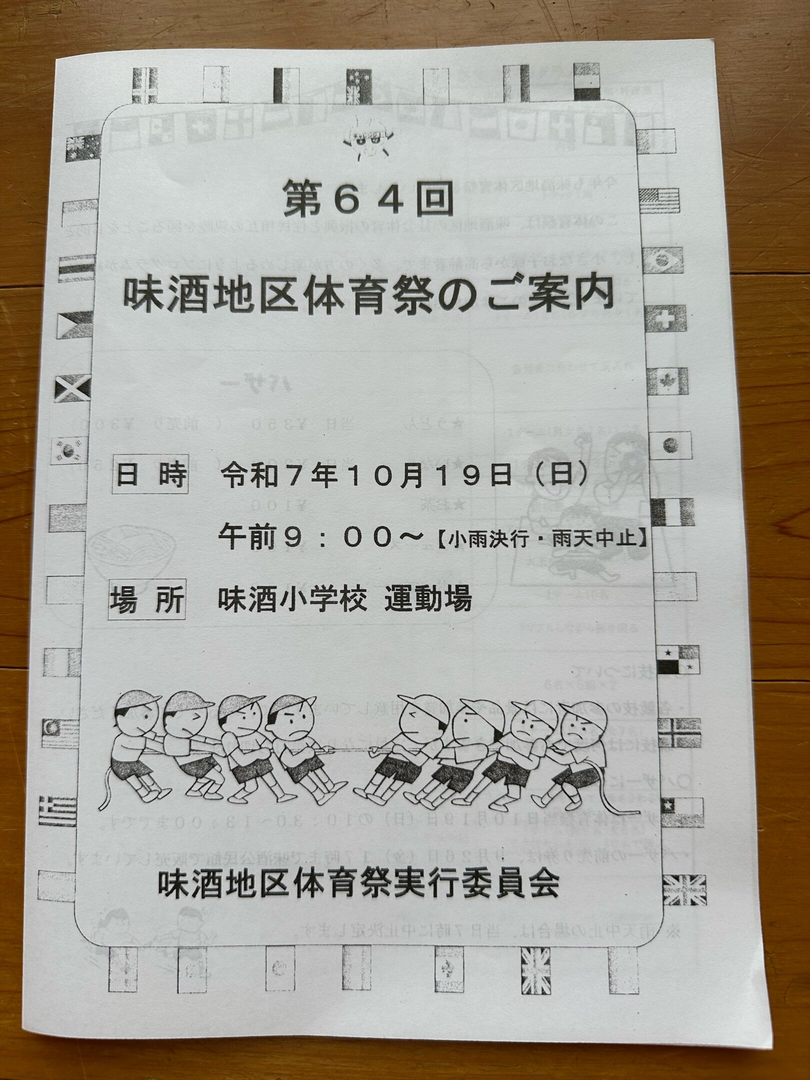 第６４回
味酒地区体育祭のご案内
日 時 令和７年１０月１９日（日）
午前９：００～【小雨決行・雨天中止】
場 所 味酒小学校 運動場
味酒地区体育祭実行委員会